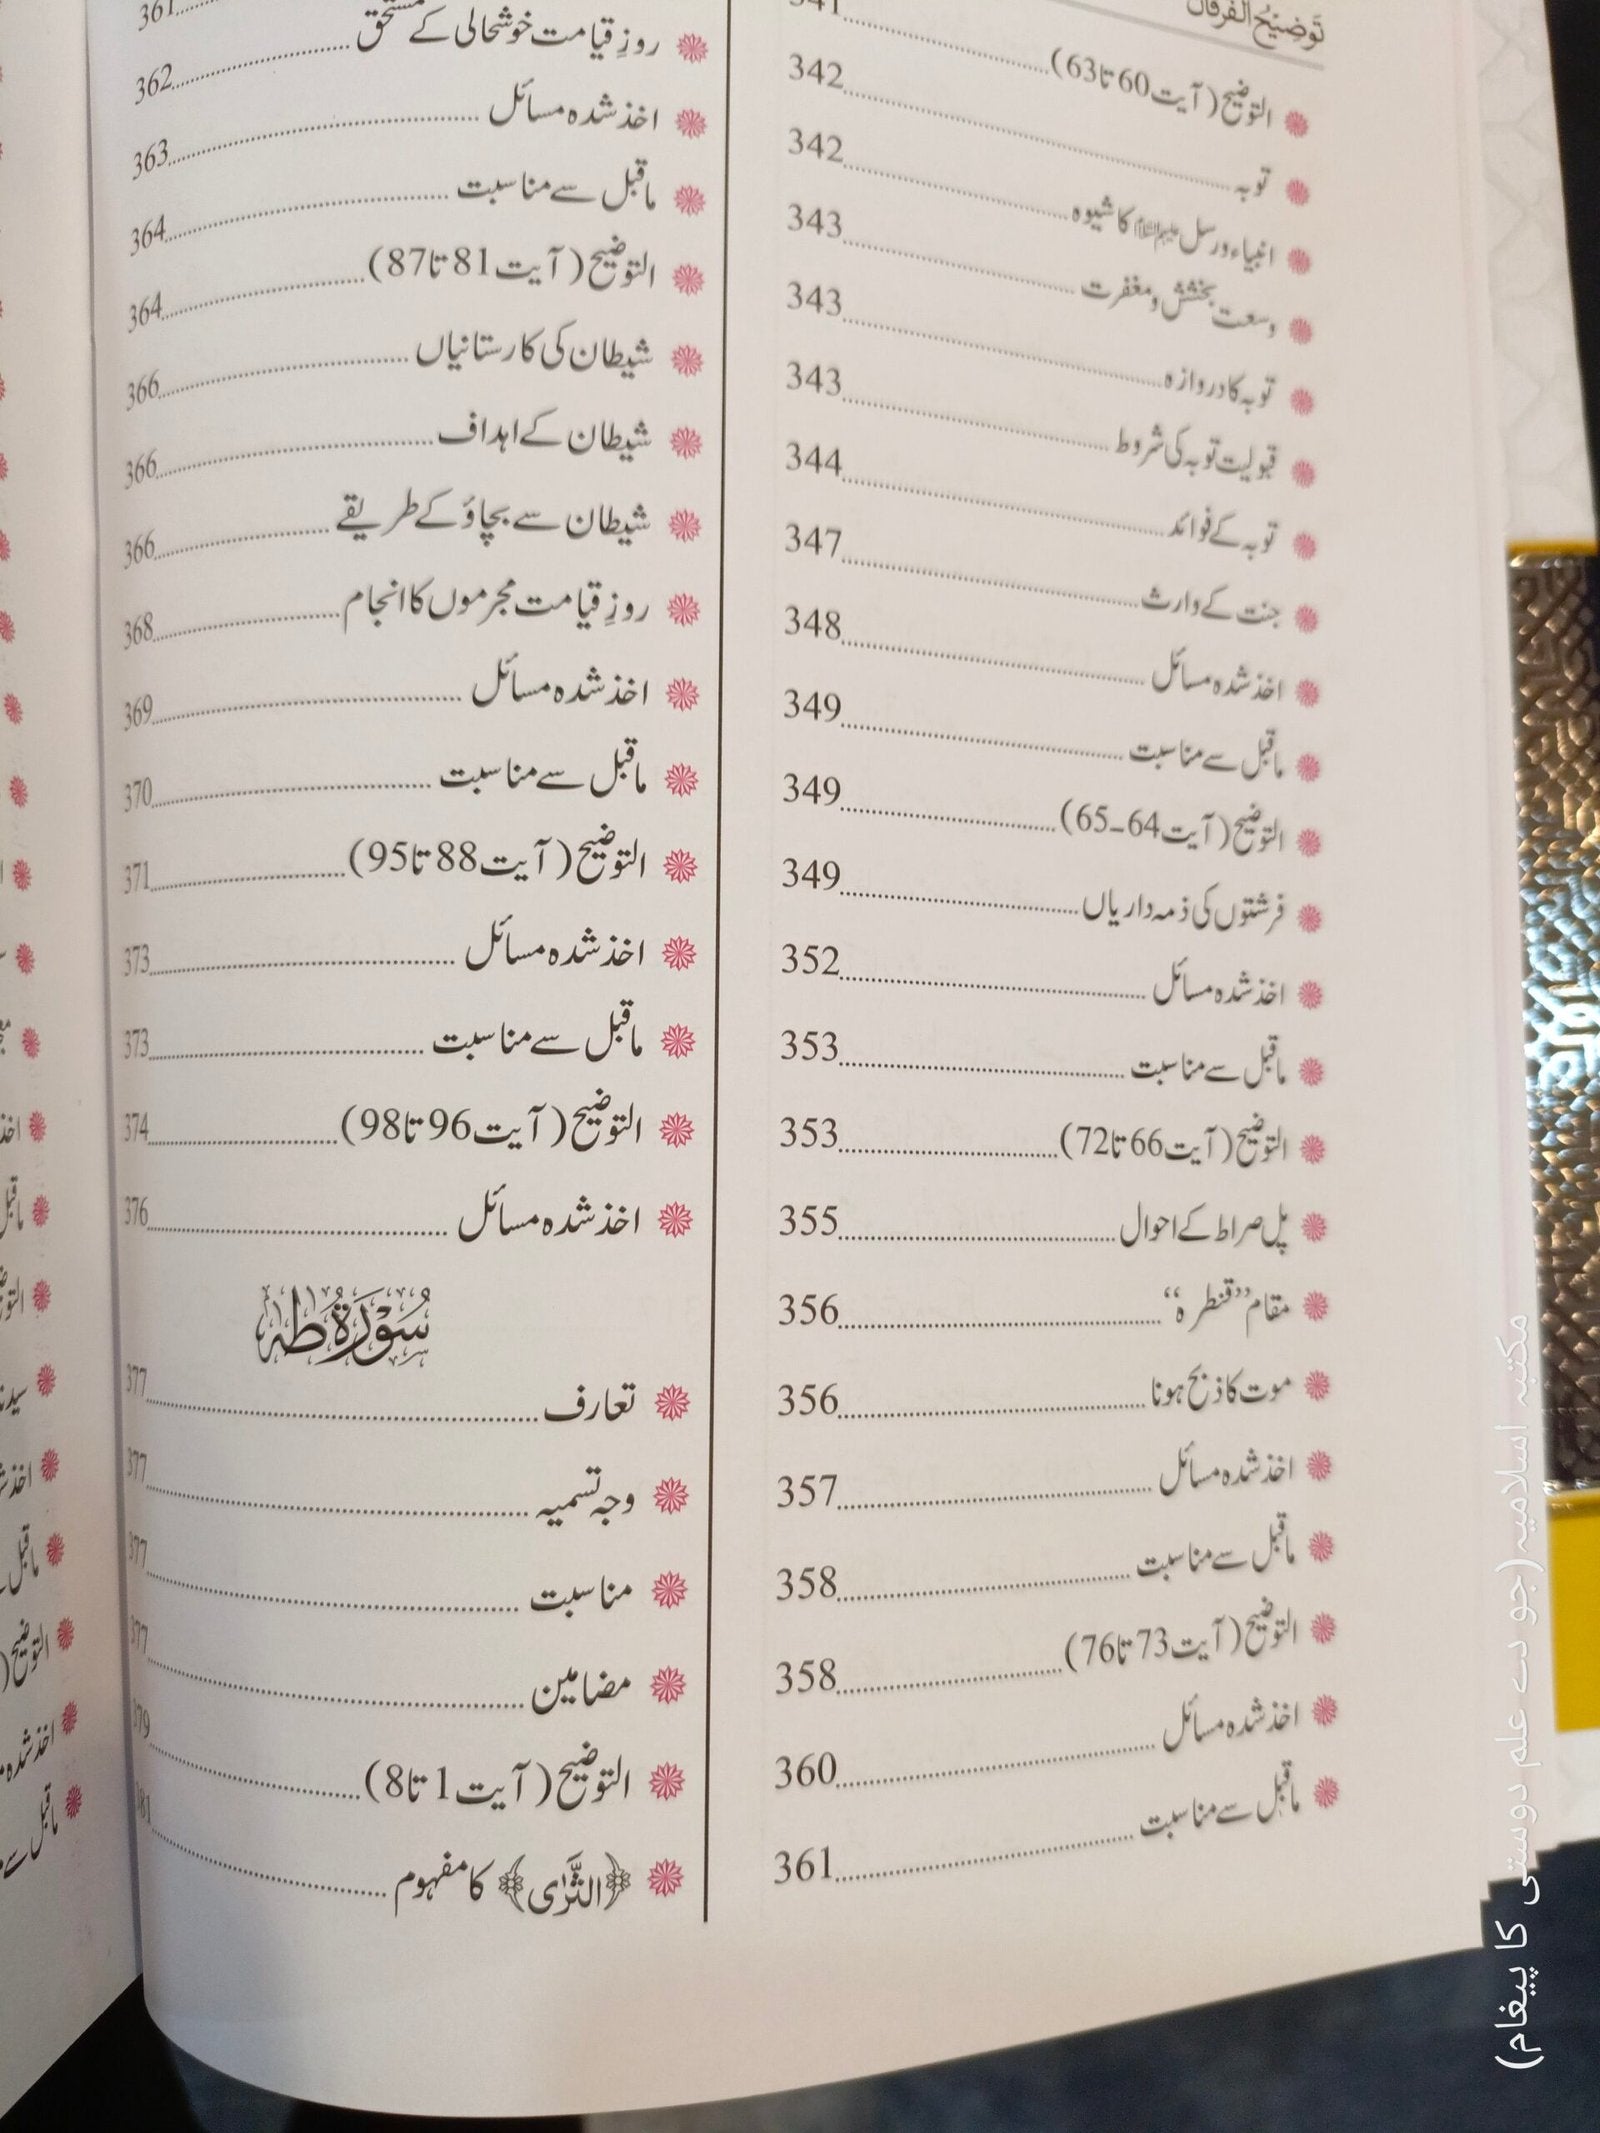 توضیح الفرقان
341
التوضیح (آیت 60 تا 63) 342
توبہ 342
انبیاء و رسل علیہم السلام کا شیوہ 343
وسعت بخشش و مغفرت 343
توبہ کا دروازہ 343
قبولیت توبہ کی شروط 344
توبہ کے فوائد 347
جنت کے وارث 348
اخذ شدہ مسائل 349
ماقبل سے مناسبت 349
التوضیح (آیت 64-65) 349
فرشتوں کی ذمہ داریاں 352
اخذ شدہ مسائل 353
ماقبل سے مناسبت 353
التوضیح (آیت 66 تا 72) 355
پل صراط کے احوال 356
مقام ”قنطرہ“ 356
موت کا ذبح ہونا 357
اخذ شدہ مسائل 358
ماقبل سے مناسبت 358
التوضیح (آیت 73 تا 76) 360
اخذ شدہ مسائل 361
ماقبل سے مناسبت
361
روزِ قیامت خوشحالی کے مستحق 362
اخذ شدہ مسائل 363
ماقبل سے مناسبت 364
التوضیح (آیت 81 تا 87) 364
شیطان کی کارستانیاں 366
شیطان کے اہداف 366
شیطان سے بچاؤ کے طریقے 366
روزِ قیامت مجرموں کا انجام 368
اخذ شدہ مسائل 369
ماقبل سے مناسبت 370
التوضیح (آیت 88 تا 95) 371
اخذ شدہ مسائل 373
ماقبل سے مناسبت 373
التوضیح (آیت 96 تا 98) 374
اخذ شدہ مسائل 376
سُوْرَةُ طٰہٰ
تعارف 377
وجہ تسمیہ 377
مناسبت 377
مضامین 377
التوضیح (آیت 1 تا 8) 379
﴿الثَّرٰی﴾ کا مفہوم 381
مکتبہ اسلامیہ (جو دے علم دوستی کا پیغام)